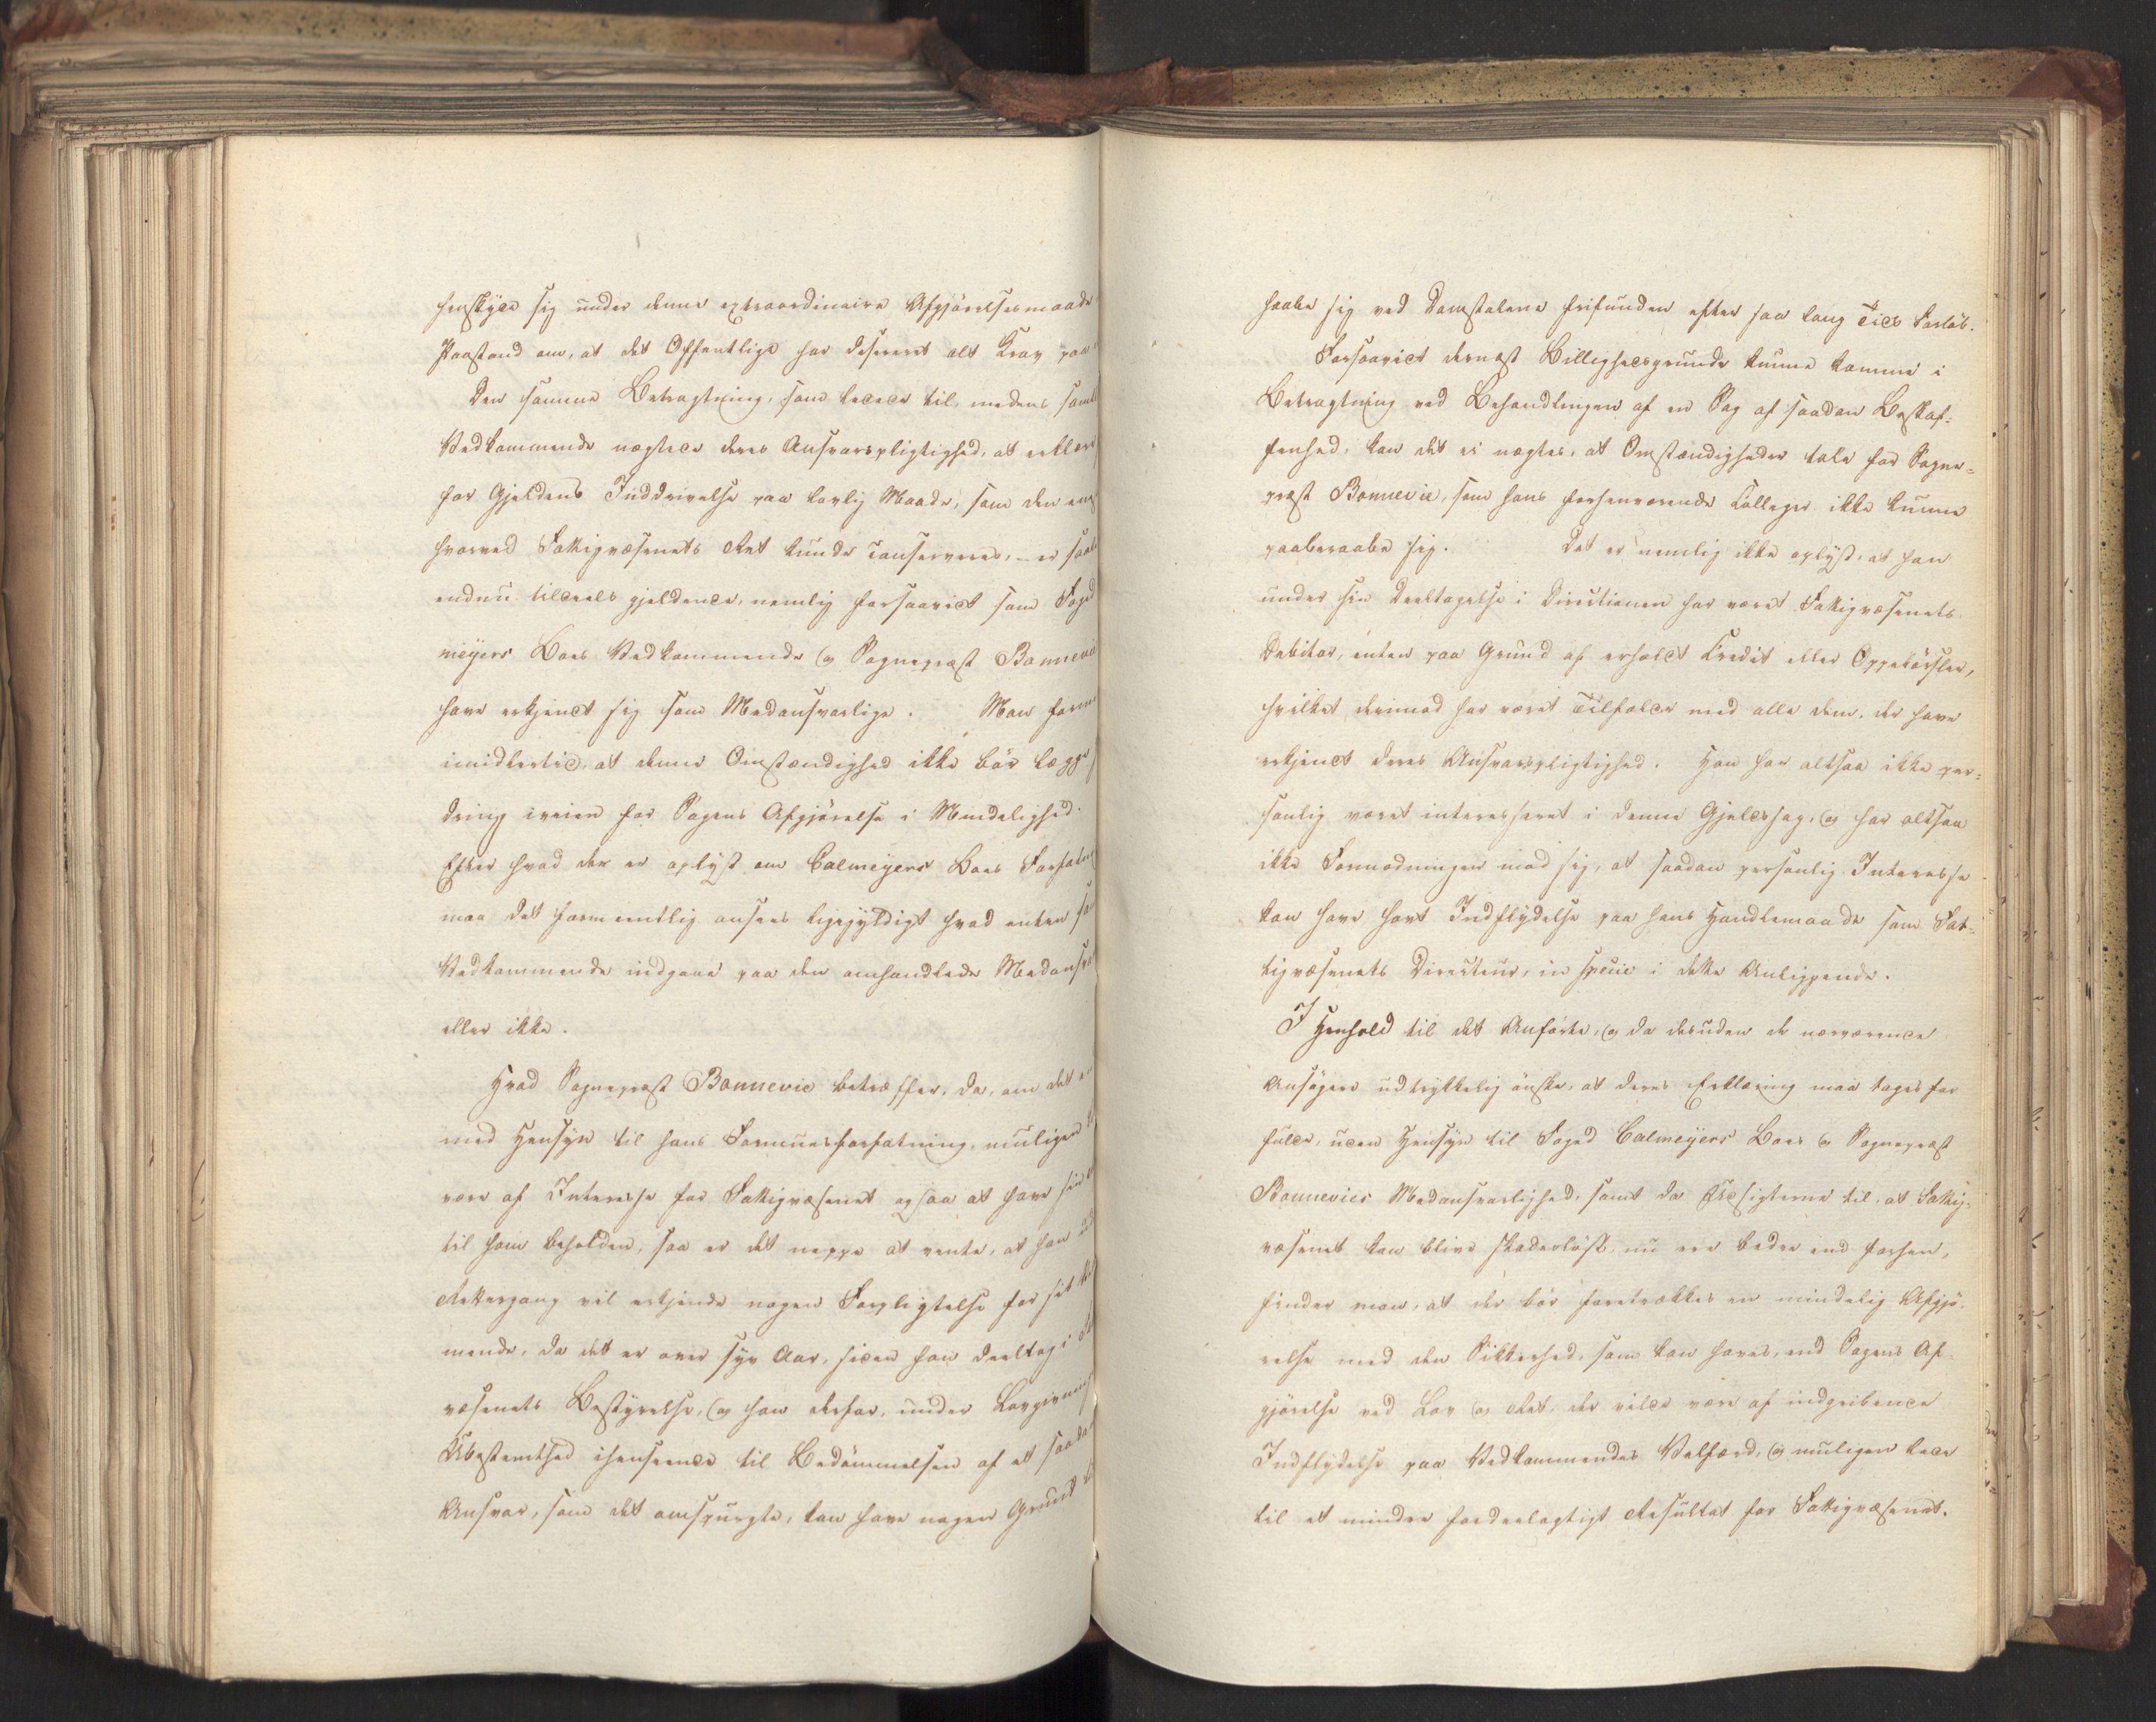 henskyde sig under denne extraordinaire Afgjørelsesmaade
Paastand om, at det Offentlige har desereret alt Krav paa
Den samme Betragtning, som ledede til, medens samtl
Vedkommende nægtede deres Ansvarspligtighed, at erklære
for Gjeldens Inddrivelse paa lovlig Maade, som den enes
hvorved Fattigvæsenets Ret kunde conserveres, – er saale
endnu tildeels gjeldende, nemlig forsaavidt som Foged
meyers Boes Vedkommende og Sognepræst Bonnevie
have erkjendt sig som Medansvarlige. Man form
imidlertid, at denne Omstændighed ikke bør lægge
dring iveien for Sagens Afgjørelse i Mindelighed.
Efter hvad der er oplyst om Calmeyers Boes Forfatn
maa det formeentlig ansees ligegyldigt hvad enten
Vedkommende indgaae paa den omhandlede Medansva
eller ikke.
Hvad Sognepræst Bonnevie betræffer, da, om det e
med Hensyn til hans Formuesforfatning, muligen
være af Interesse for Fattigvæsenet ogsaa at have sin
til ham beholden, saa er det neppe at vente, at han
Rettergang vil erkjende nogen Forpligtelse for sit
mende, da det er over syv Aar, siden han deeltog i
væsenets Bestyrelse, og han derfor, under Lovgivning
Ubestemthed ihenseende til Bedømmelsen af et saadan
Ansvar, som det omspurgte, kan have nogen Grund
haabe sig ved Domstolene frifunden efter saa lang Tids Forløb.
Forsaavidt dernæst Billighedsgrunde kunne komme i
Betragtning ved Behandlingen af en Sag af saadan Beskaf-
fenhed, kan det ei nægtes, at Omstændigheder tale for Sogne-
præst Bonnevie, som hans forhenværende Colleger ikke kunne
paaberaabe sig. Det er nemlig ikke oplyst, at han
under sin Deeltagelse i Directionen har været Fattigvæsenets
Debitor, enten paa Grund af erholdt Credit eller Oppebørsler,
hvilket derimod har været Tilfælde med alle dem, der have
erkjendt deres Ansvarspligtighed. Han har altsaa ikke per-
sonlig været interesseret i denne Gjeldssag, og har altsaa
ikke Formodningen mod sig, at saadan personlig Interesse
kan have havt Indflydelse paa hans Handlemaade som Fat-
tigvæsenets Directeur, in specie i dette Anliggende.
I Henhold til det Anførte, og da desuden de nærværende
Ansøgere udtrykkelig ønske, at deres Erklæring maa tages for
fulde, uden Hensyn til Foged Calmeyers Boes og Sognepræst
Bonnevies Medansvarlighed, samt da Udsigterne til, at Fattig-
væsenet kan blive skadesløst, nu ere bedre end forhen,
finder man, at der bør foretrækkes en mindelig Afgjø-
relse med den Sikkerhed, som kan haves, end Sagens Af-
gjørelse ved Lov og Ret, der vilde være af indgribende
Indflydelse paa Vedkommendes Velfærd, og muligen lede
til et mindre fordeelagtigt Resultat for Fattigvæsenet.